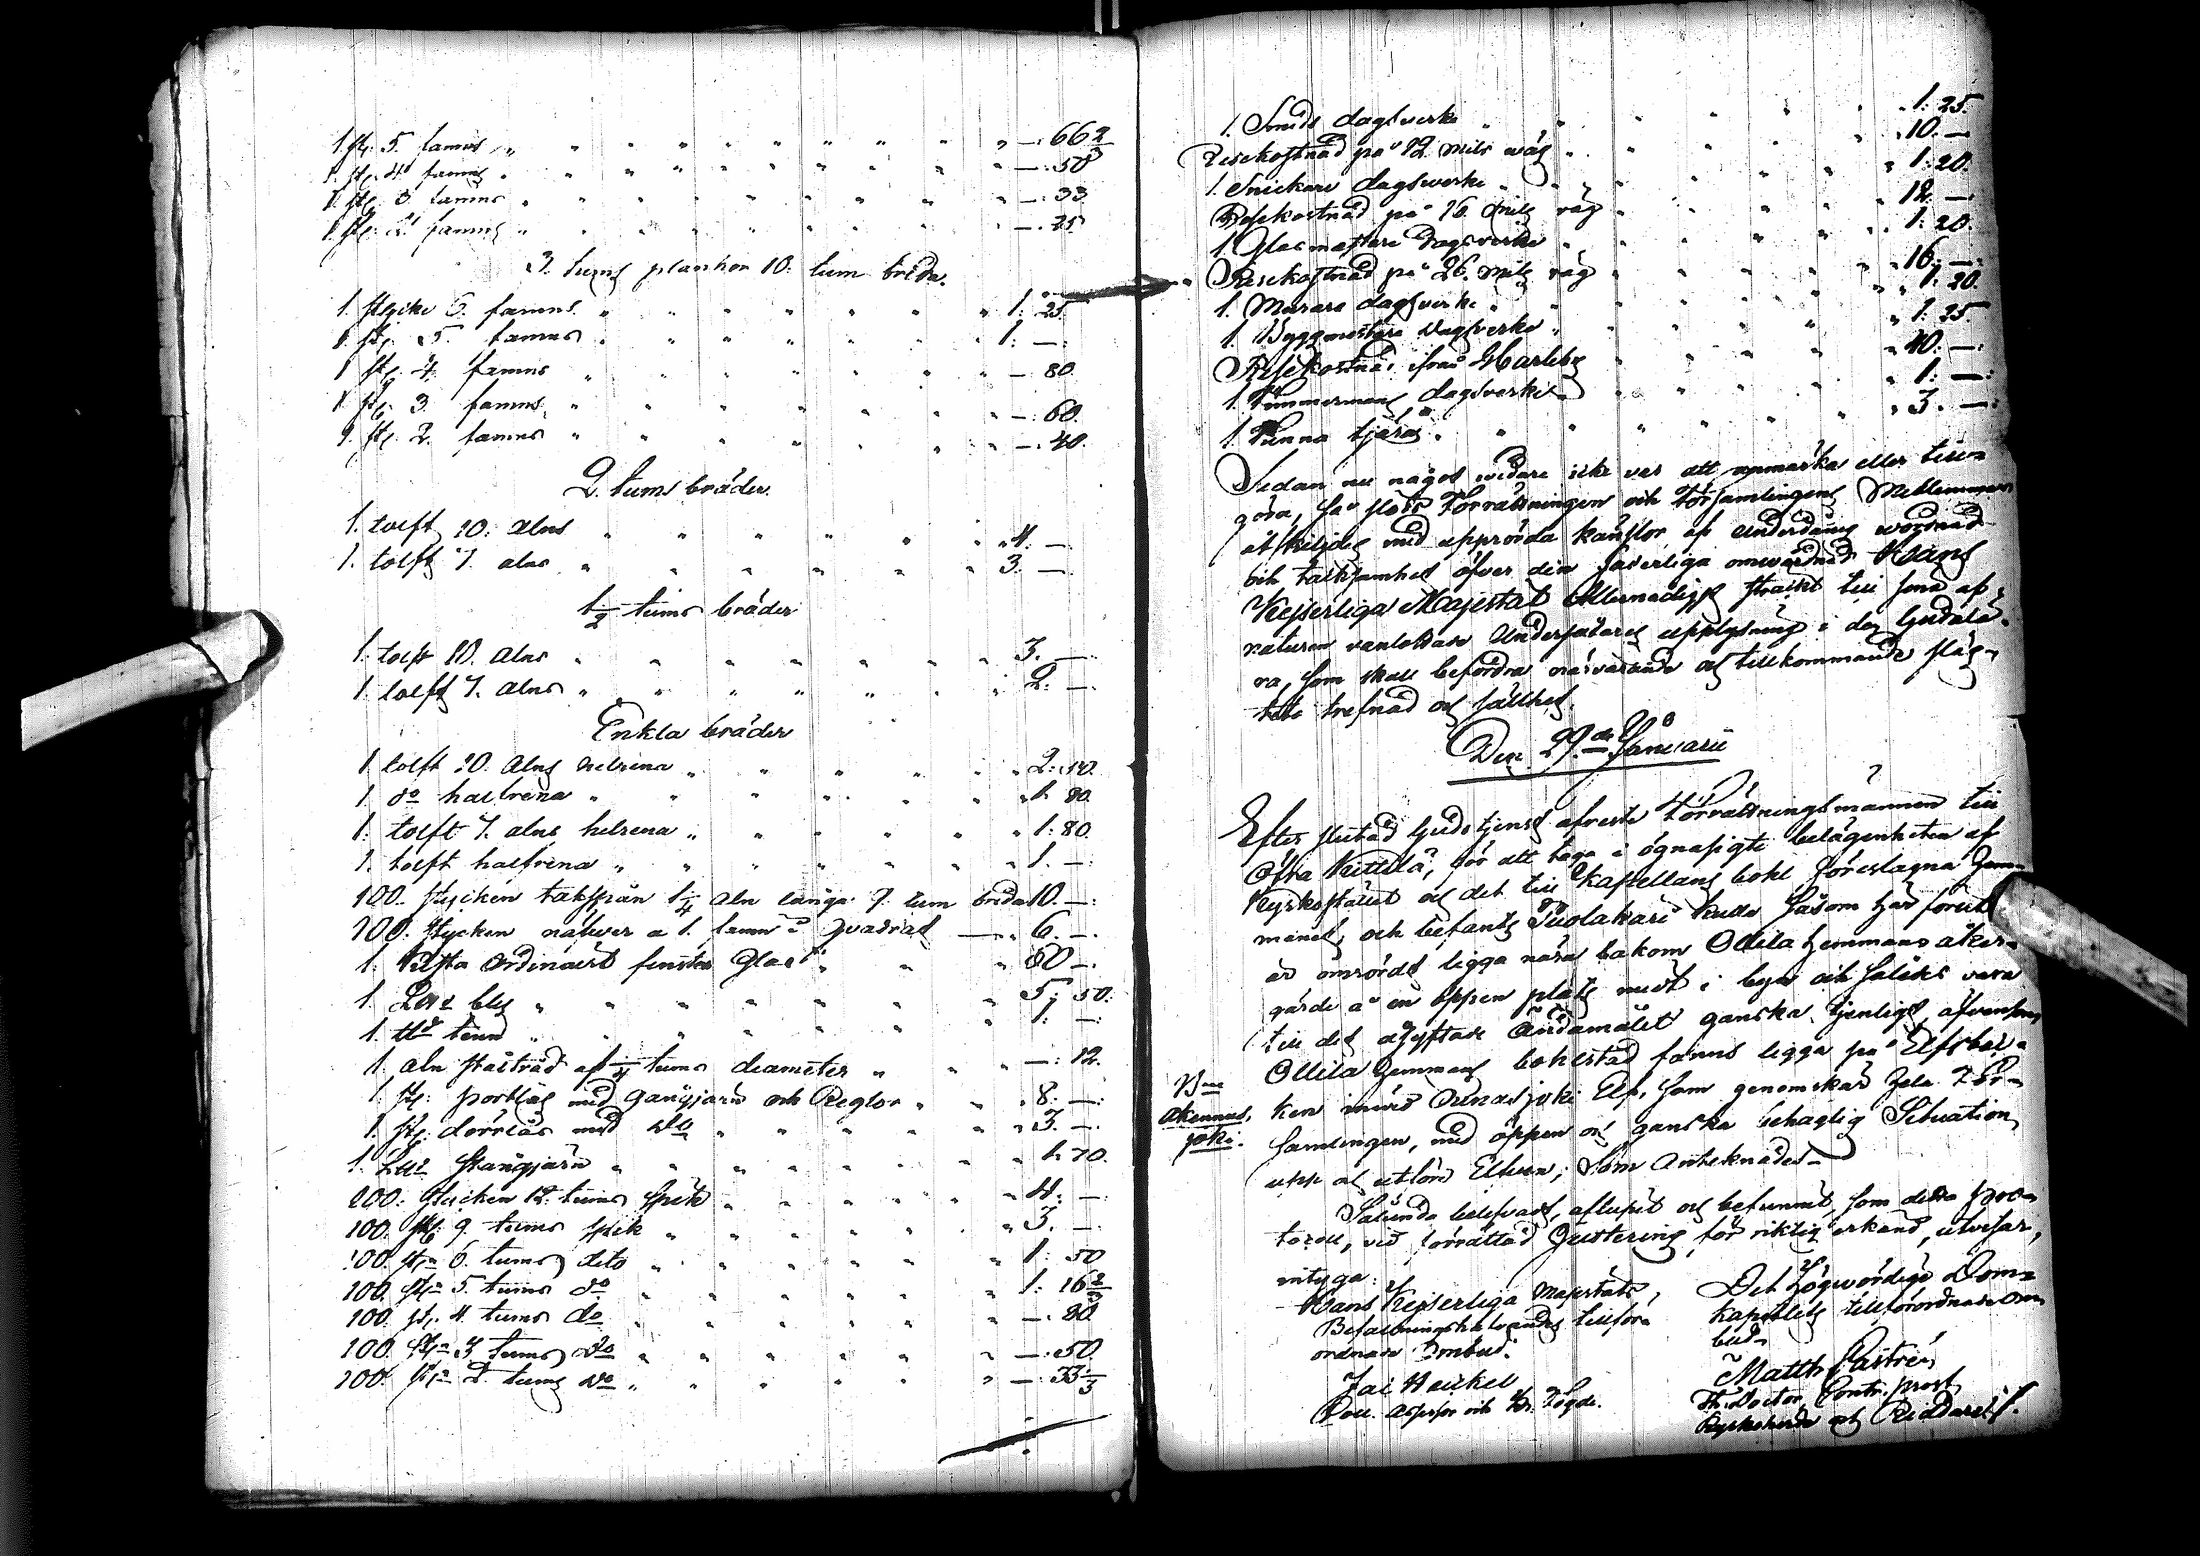 1. st: 5. famns " " " " " " " " " —: 66 2/3
1. st: 4 famns " " " " " " " " " —: 50
1. st: 3 famns " " " " " " " " " —: 33
1. st: 2 famns " " " " " " " " " —: 25
3. tums plankor 10: tum breda.
1. stycke 6. famns. " " " " " " " 1: 25.
1. st: 5. famns " " " " " " " 1: —.
1 st: 4. famns " " " " " " " — 80
1. st: 3. famns " " " " " " " —: 60.
1. st: 2. famns " " " " " " " —: 40.
2. tums bräder.
1. tolft 10: alns " " " " " " 4. —.
1. tolft 7. alns " " " " " " 3. —.
1/2 tums bräder
1. tolft 10. alns " " " " " " 3. —.
1. tolft 7. alns " " " " " " 2: —.
Enkla bräder
1. tolft 10. alns helrena " " " " " 2:
1. do halfrena " " " " " 1. 80.
1: tolft 7. alns helrena " " " " " 1: 80.
1. tolft halfrena " " " " " 1. —:
100. stycken takspån 1 1/4 aln långa 7. tum breda 10. —:
100. stycken näfwer a 1. famn i qvadrat — " 6. —.
1: Kista Ordinairt fenster Glas " " " —.
1. blÿ " " " " " " " 5: 50:
1. tenn " " " " " " " 1: —:
1. aln ståltråd af tums diameter " " —: 12.
1. st: portlås med gångjärn och Reglor " " 8: —:
1. st: dörrlås med do " " " " " 3. —.
1. stångjärn " " " " " " 1. 70.
100: stycken 12. tums spik " " " " " 4. —.
100. st: 9. tums spik " " " " " 3. —.
100. st: 6. tums dito " " " " " 1: 50
100. st: 5. tums do " " " " " 1: 16 2/3
100. st: 4. tums do " " " " " —: 80
100. st: 3 tums do " " " " " —: 50.
100. st: 2. tums do " " " " " —: 33 1/3
1. Smids dagsverke " " " " " 1: 25.
Resekostnad på 12. mils wäg " " " " 10. —
1. Snickare dagsverke " " " " " 1: 20.
Resekostnad på 16. mils väg " " " " 12. —
1. Glasmästare dagsverke " " " " 1: 20.
Resekostnad på 26. mils väg " " " " 16. —:
1. Murare dagsverke " " " " " 1: 20.
1. Byggmästare dagsverke " " " " 1: 25
Resekostnad ifrån Karleby " " " " 40. —:
1. Timmermans dagsverke " " " " 1: —:
1. Tunna tjära " " " " " " 3. —:
Sedan nu något vidare icke var att anmärka eller till-
göra, så slöts Förrättningen och Församlingens Medlemmar
åtskiljdes med upprörda känslor af underdånig wördnad
och tacksamhet öfver den faderliga omvårdnad Hans
Kejserliga Majestät Allernådigst sträckt till sina af
naturen vanlottade Undersåtares upplysning i den Gudalä-
ra, som skall befordra närvarande och tillkommande släg-
tets trefnad och sällhet.
Den 29de Januarii
Efter slutad Gudstjenst afreste Förrättningsmännen till
Öfra Kittilä, för att taga i ögnasigte belägenheten af
Kyrkostället och det till Kapellans bohl föreslagna Hem-
manet, och befants Tuolakari kulle såsom här förut
är omrördt ligga nära bakom Ollila hemmans åker-
gärde å en öppen plats midt i byn och således vara
till det åsyftade Ändamålet ganska tjenligt, äfvensom
Ollila Hemmans bohlstad fanns ligga på Elfsbräd-
ken invid Ounasjoki Elf, som genomskär hela För-
samlingen, med öppen och ganska behaglig Situation
upp och utföre Elfven; Som Antecknades—
akennus
joki.
Sålunda belefvadt, aflupit och befunnit, som detta proto-
koll, vid förrättad Justering för riktig erkänd, utvisar,
intyga:
Hans Kejserliga Majestäts,
Befallningshafvandes tillför-
ordnade Ombud.
Jac Heickel
Coll. Assessor och Kr. Fogde.
Det Högwördiga Dom-
kapitlets tillförordnade Om-
bud.
Matth Castrén
Th. Doctor Contr. prost
Kyrkoherde och Riddare.